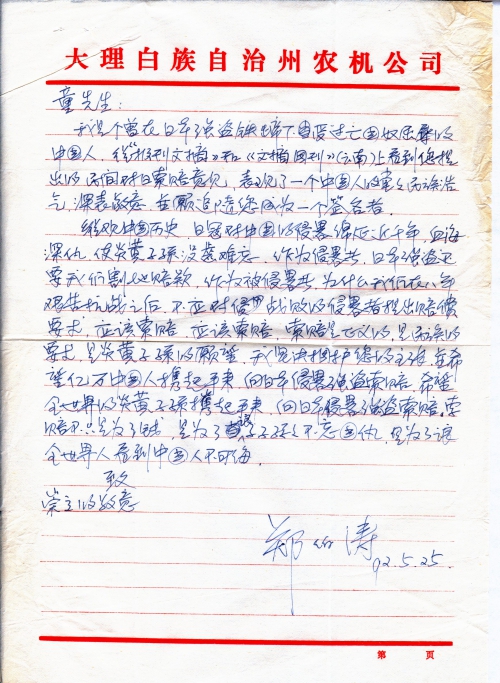 大理白族自治州农机公司
童先生：
我是个曾在日军强盗铁蹄下曾受过亡国奴屈辱的
中国人，从“报刊文摘”和《文摘周刊》（云南）上看到您提
出的民间对日索赔意见，表现了一个中国人的堂堂民族浩
气，深表敬意，并愿追随您成为一个签名者。
纵观中国历史，日寇对中国的侵略绵延近千年，血海
深仇，使炎黄子孙没齿难忘。作为侵略者，日军强盗还
要我们割地赔款，作为被侵略者，为什么我们在八年
艰苦抗战之后，不应对侵战败的侵略者提出赔偿
要求，应该索赔，应该索赔，索赔是正义的，是民族的
要求，是炎黄子孙的愿望，我坚决拥护您的主张，并希
望亿万中国人携起手来，向日军侵略强盗索赔，希望
全世界的炎黄子孙携起手来，向日军侵略强盗索赔。索
赔不只是为了钱，是为了子子孙孙不忘国仇，是为了让
全世界人看到中国人不可侮。
致
崇高的敬意
郑 涛
92.5.25
第 页